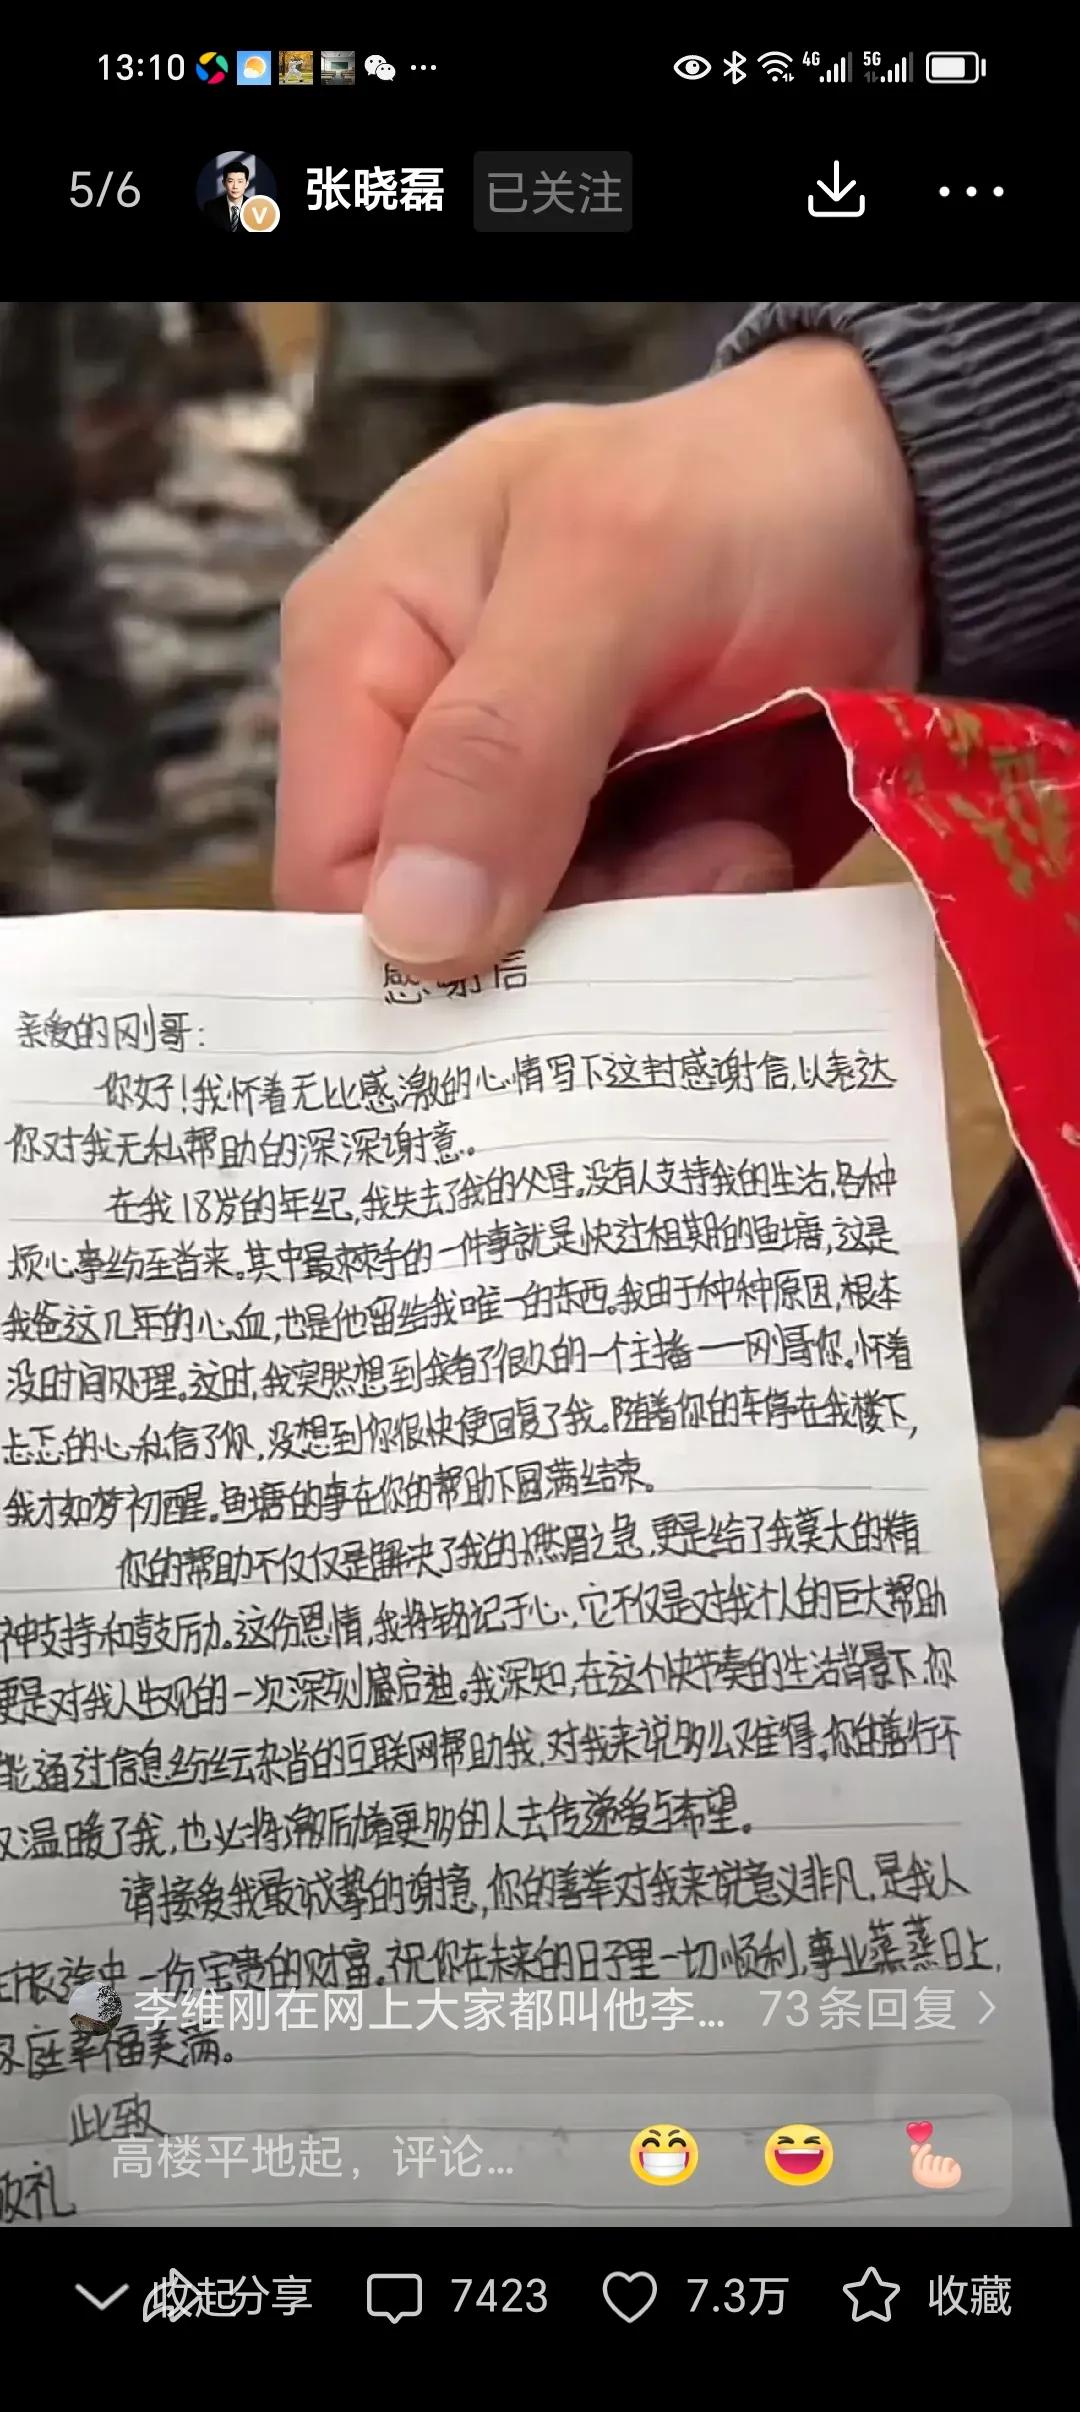 13:10
4G
5G
5/6
张晓磊
已关注
感谢信
亲爱的刚哥：
你好！我怀着无比感激的心情写下这封感谢信，以表达
你对我无私帮助的深深谢意。
在我18岁的年纪，我失去了我的父母。没有人支持我的生活，各种
烦心事纷至沓来。其中最棘手的一件事就是快过租期的鱼塘，这是
我爸这几年的心血，也是他留给我唯一的东西。我由于种种原因，根本
没时间处理。这时，我突然想到我看了很久的一个主播——刚哥你。怀着
忐忑的心私信了你，没想到你很快便回复了我。随着你的车停在我楼下，
我才如梦初醒。鱼塘的事在你的帮助下圆满结束。
你的帮助不仅仅是解决了我的燃眉之急，更是给了我莫大的精
神支持和鼓励。这份恩情，我将铭记于心，它不仅是对我个人的巨大帮助
更是对我人生观的一次深刻启迪。我深知，在这个快节奏的生活背景下，你
能通过信息纷纭杂沓的互联网帮助我，对我来说多么难得。你的善行不
仅温暖了我，也必将激励着更多的人去传递爱与希望。
请接受我最诚挚的谢意，你的善举对我来说意义非凡，是我人
生旅途中一份宝贵的财富。祝你在未来的日子里一切顺利，事业蒸蒸日上，
李维刚在网上大家都叫他李...
73条回复
家庭幸福美满。
此致
高楼平地起，评论...
敬礼
收起
分享
7423
7.3万
收藏